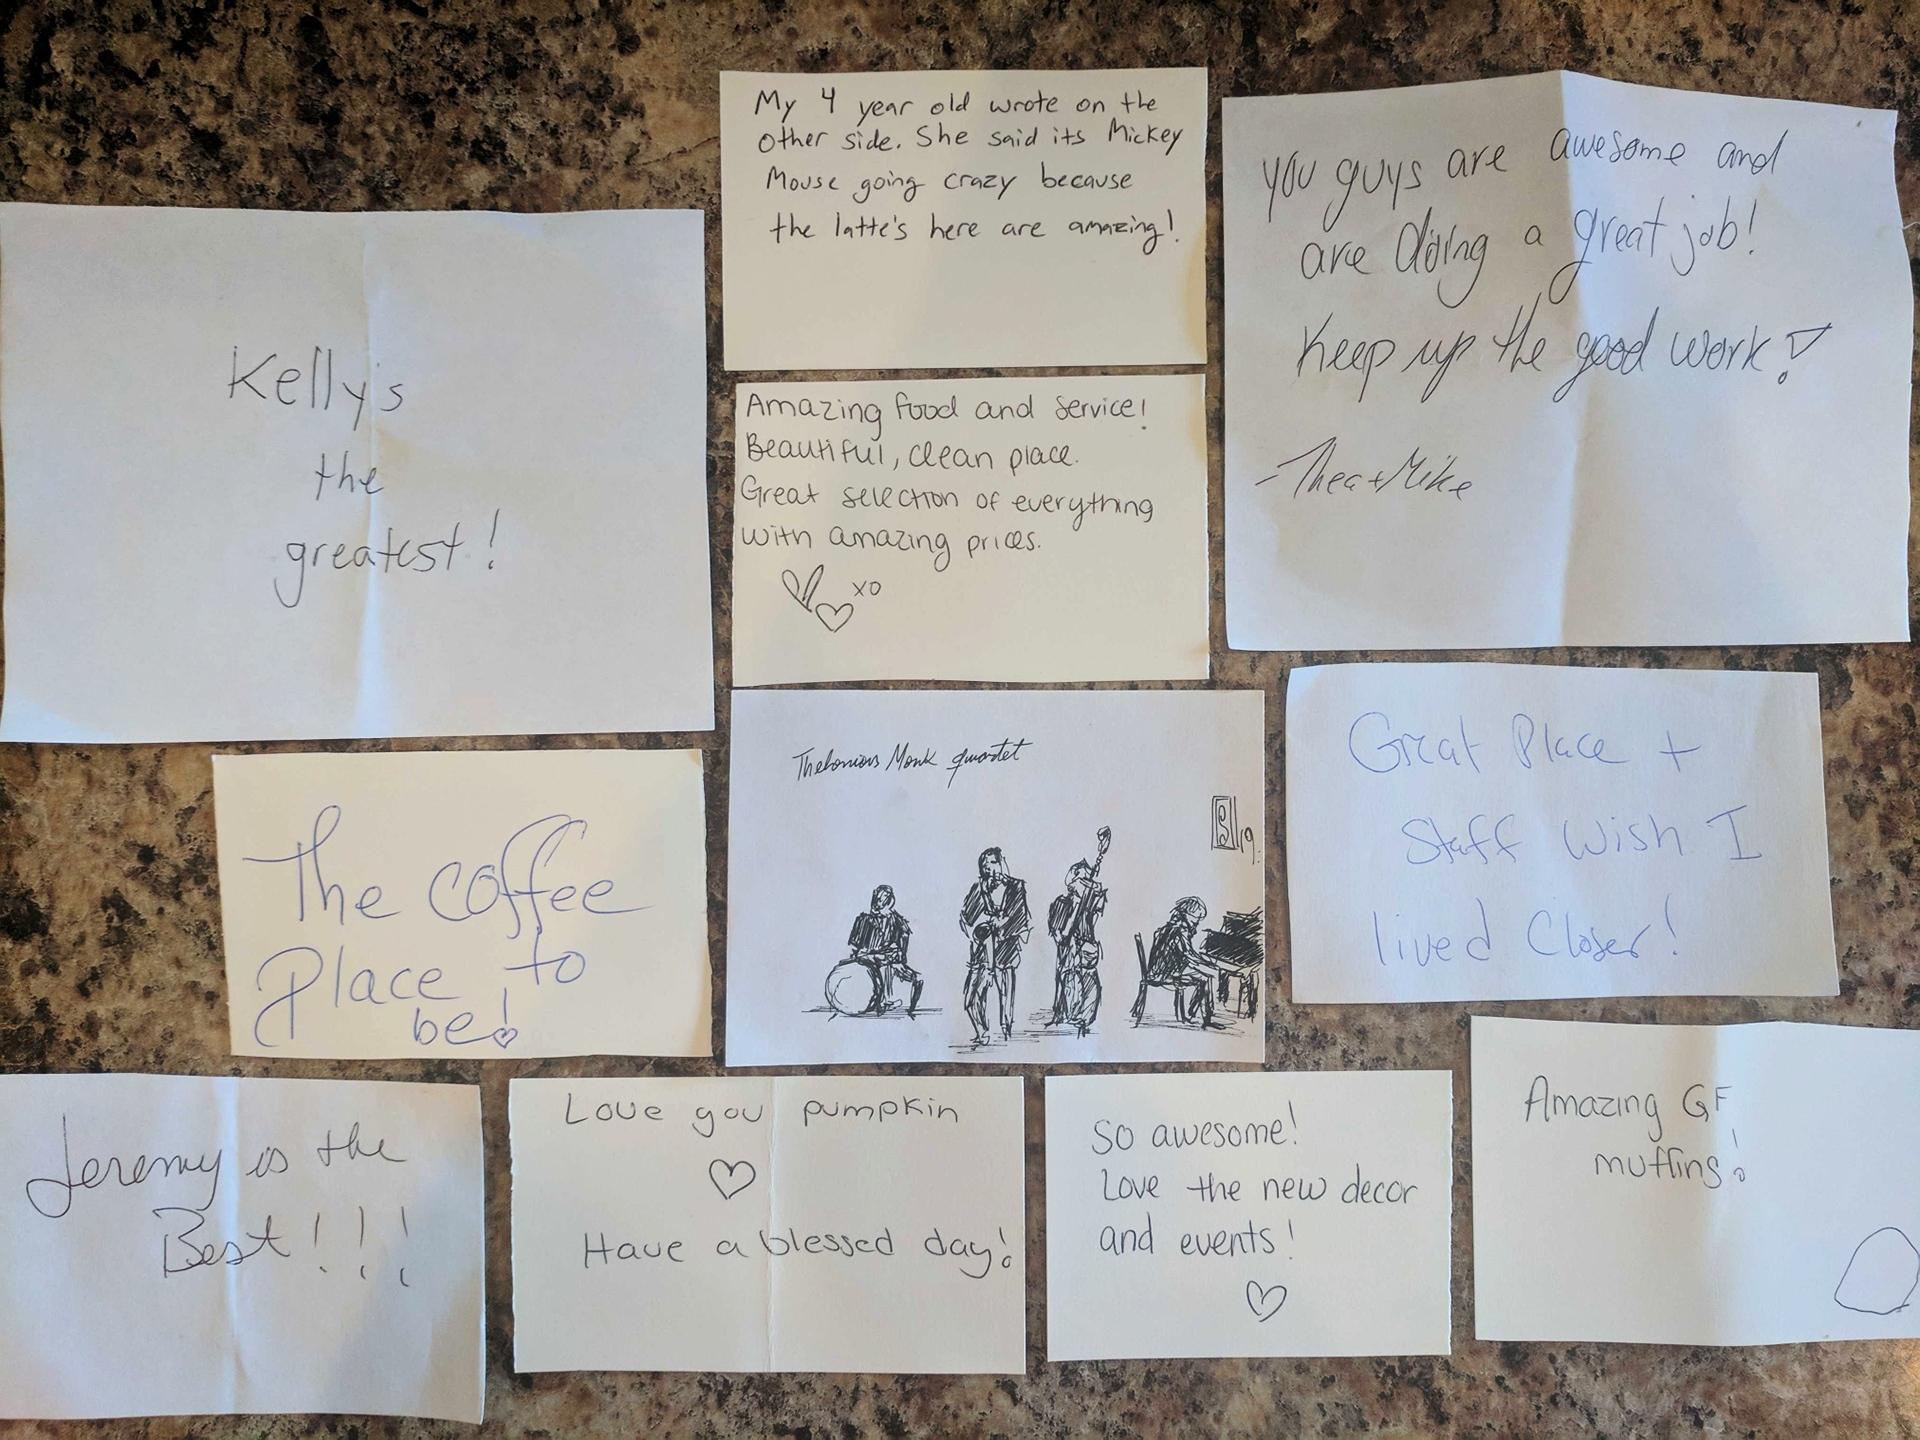 My 4 year old wrote on the
other side. She said its Mickey
Mouse going crazy because
the latte's here are amazing!
you guys are awesome and
are doing a great job!
Keep up the good work!
-Thea + Mike
Kelly's
the
greatest!
Amazing food and service!
Beautiful, clean place.
Great selection of everything
with amazing prices.
xo
Great Place +
Staff Wish I
lived Closer!
The coffee
Place to
be!
Thelonious Monk quartet
19.
Jeremy is the
Best!!!
Love you pumpkin
Have a blessed day!
So awesome!
Love the new decor
and events!
Amazing GF
muffins!